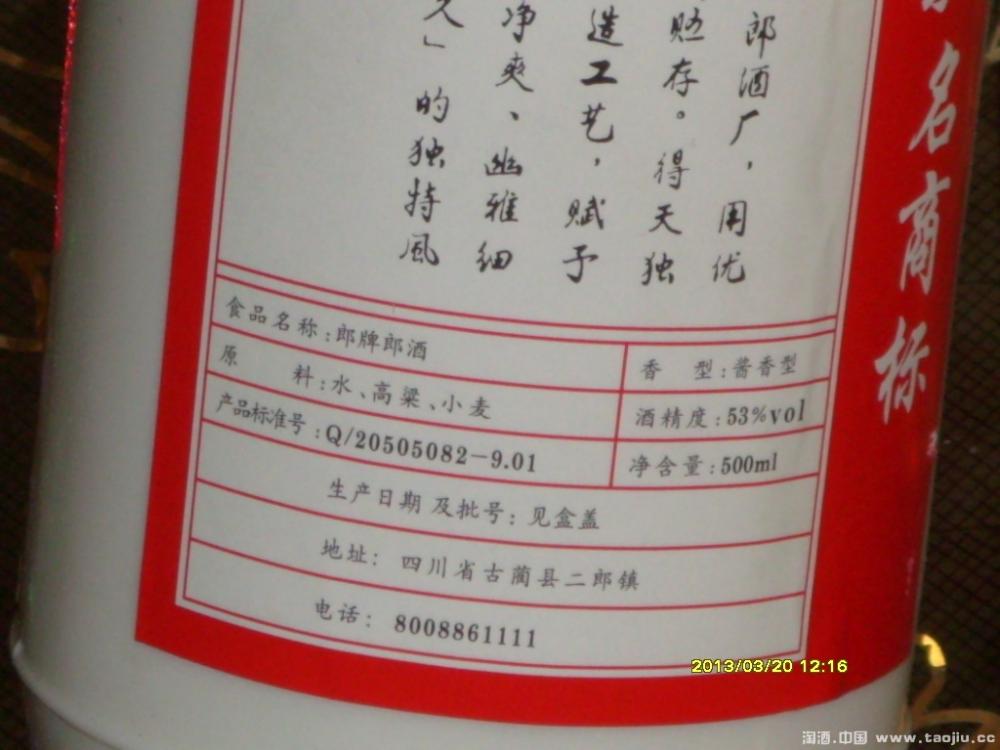 郎酒厂，用优
贮存。得天独
造工艺，赋予
净爽、幽雅细
久」的独特风
名商标
食品名称：郎牌郎酒
香 型：酱香型
原 料：水、高粱、小麦
酒精度：53%vol
产品标准号：Q/20505082-9.01
净含量：500ml
生产日期及批号：见盒盖
地址：四川省古蔺县二郎镇
电话：8008861111
2013/03/20 12:16
淘酒.中国 www.taojiu.cc